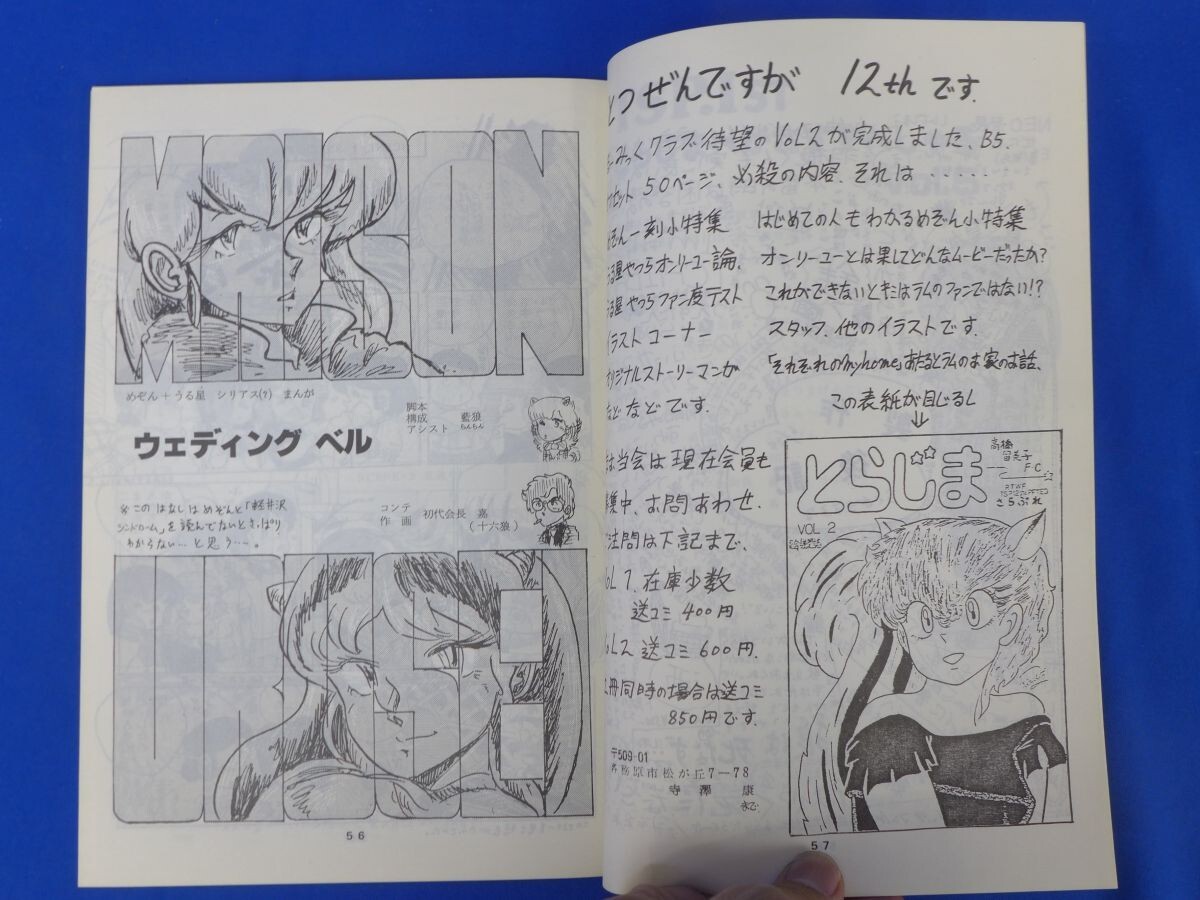 MAISON
めぞん+うる星 シリアス(?) まんが
脚本
構成 藍狼
アシスト らんらん
ウェディング ベル
コンテ
作画 初代会長 嘉
(十六狼)
※この はなしは めぞんと「軽井沢
シンドローム」を読んでないと さっぱり
わからない…と 思う…。
URUSEI
56
とつぜんですが 12th です.
みっくクラブ待望のVol.2が完成しました、B5.
セット 50ページ、必殺の内容、それは・・・・・
ぞん一刻小特集 はじめての人もわかるめぞん小特集
る星やつらオンリーユー論、 オンリーユーとは果してどんなムービーだったか?
る星やつらファン度テスト これができないとキミはラムのファンではない!?
イラスト コーナー スタッフ、他のイラストです.
オリジナルストーリーマンガ 「それぞれのmyhome」あたるとラムのお家のお話、
など などです. この表紙が目じるし
は当会は現在会員も
集中、お問あわせ.
注問は下記まで、
VOL1、在庫少数
送コミ 400円
VOL2 送コミ 600円.
冊同時の場合は送コミ
850円です.
〒509-01
各務原市松が丘7-78
寺澤 康
まで
とらじま
高橋
留美子
F.C
さらぶれ
VOL 2
57